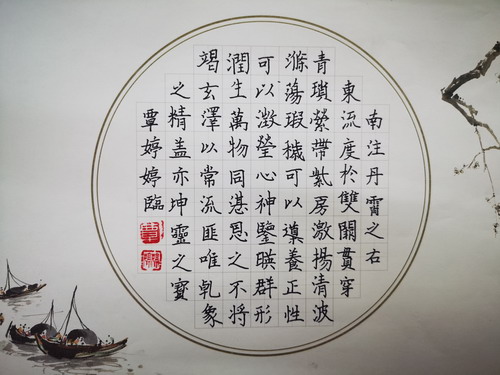 南注丹霄之右
東流度於雙闕貫穿
青瑣縈帶紫房激揚清波
滌蕩瑕穢可以導養正性
可以澂瑩心神鑒暎群形
潤生萬物同湛恩之不將
竭玄澤以常流匪唯乾象
之精盖亦坤靈之寶
覃婷婷臨